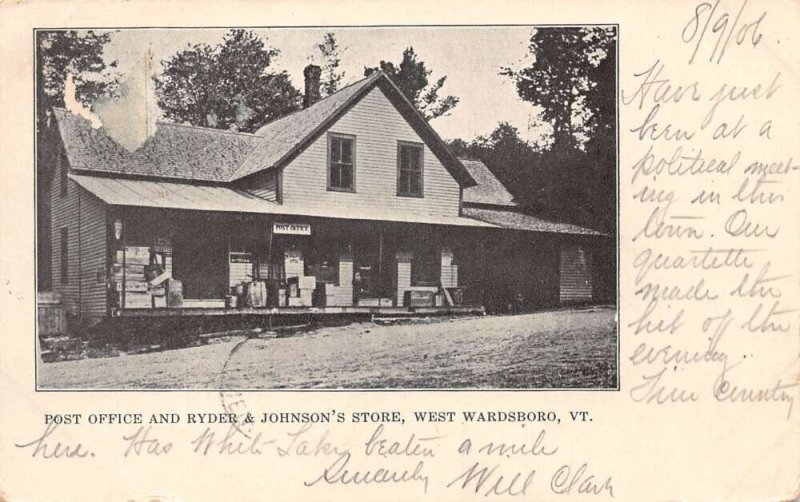 8/9/06
Have just
been at a
political meet-
ing in this
town. Our
quartette
made the
hit of the
evening.
Fine country
POST OFFICE
POST OFFICE AND RYDER & JOHNSON'S STORE, WEST WARDSBORO, VT.
here. Has White Lake beaten a mile
Sincerely Will Clark